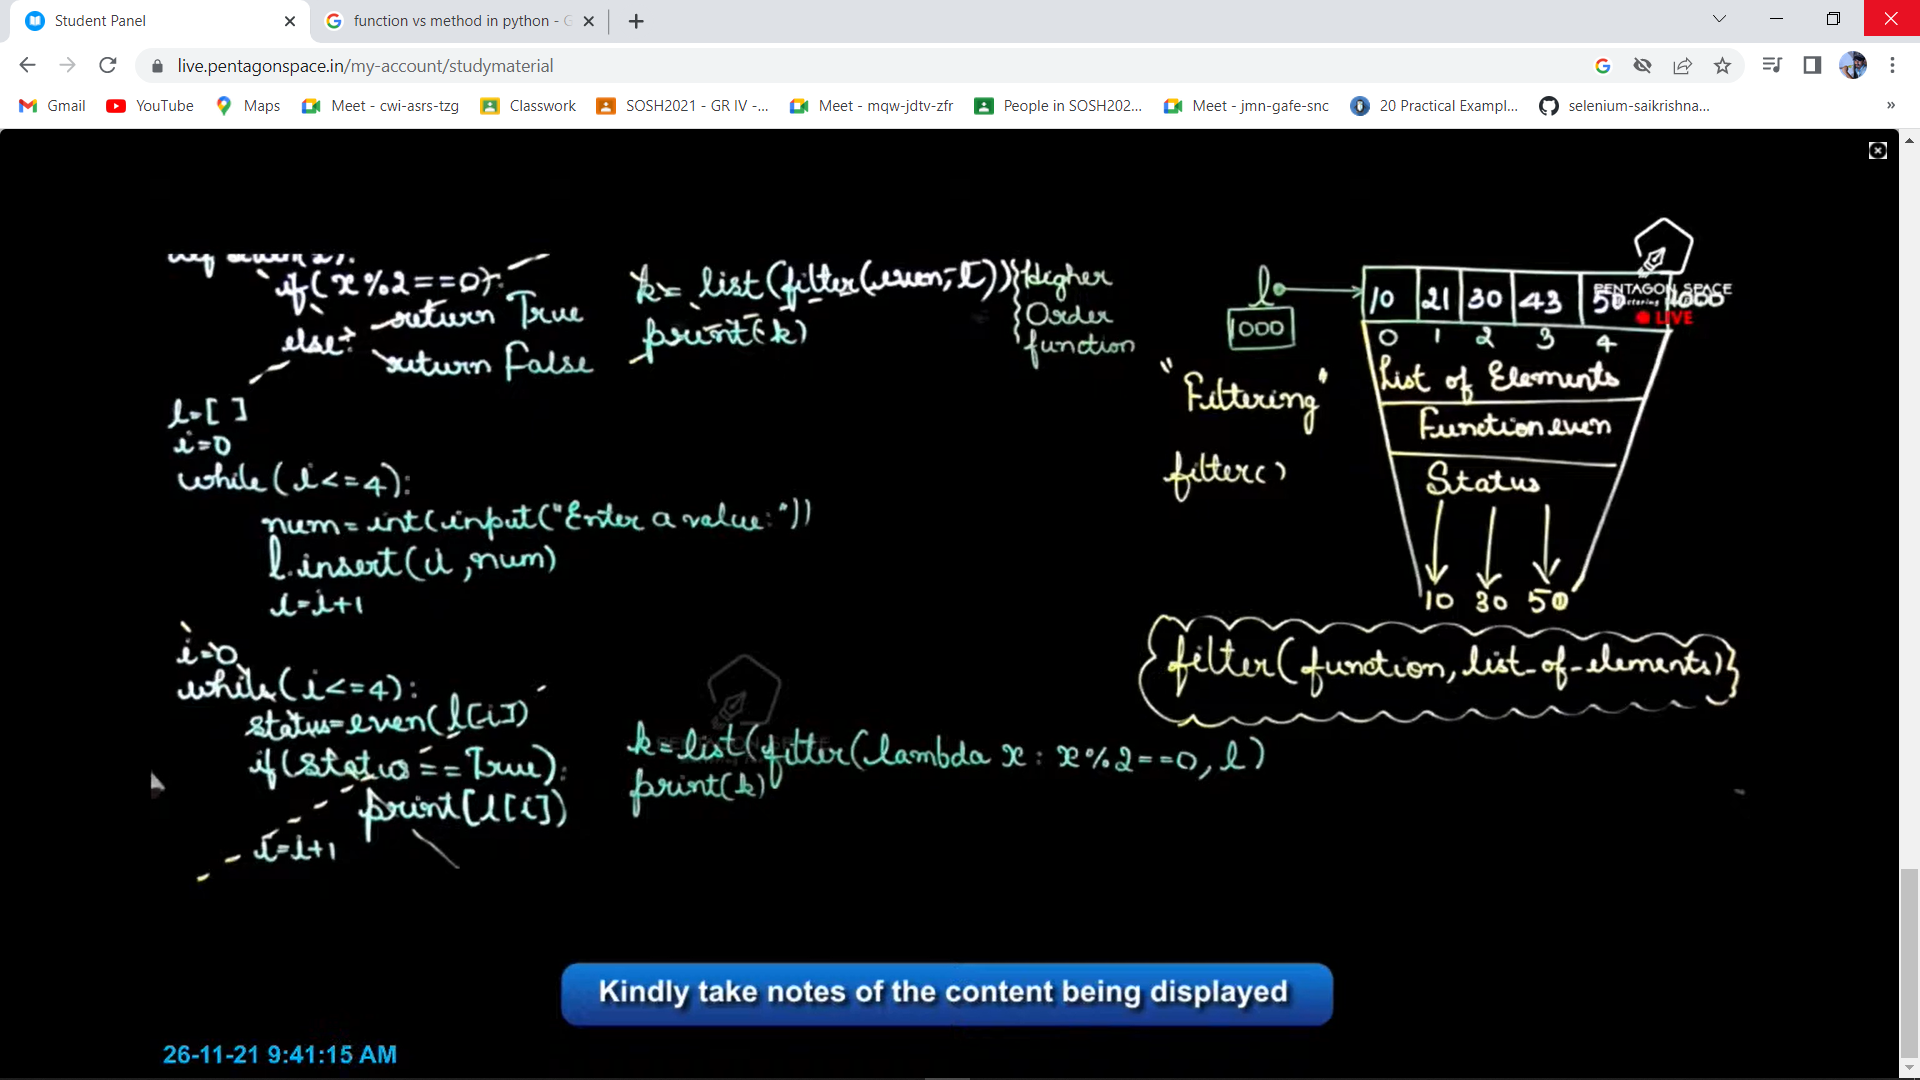 Student Panel
function vs method in python - G
live.pentagonspace.in/my-account/studymaterial
Gmail
YouTube
Maps
Meet - cwi-asrs-tzg
Classwork
SOSH2021 - GR IV -...
Meet - mqw-jdtv-zfr
People in SOSH202...
Meet - jmn-gafe-snc
20 Practical Exampl...
selenium-saikrishna...
»
if(x%2==0):
return True
else:
return False
l=[ ]
i=0
while(i<=4):
num=int(input("Enter a value:"))
l.insert(i,num)
i=i+1
i=0
while(i<=4):
status=even(l[i])
if(status==True):
print(l[i])
i=i+1
k=list(filter(even,l))
print(k)
Higher
Order
function
k=list(filter(lambda x: x%2==0, l)
print(k)
l
1000
10 21 30 43 50 1000
PENTAGON SPACE
LIVE
0 1 2 3 4
List of Elements
Function even
Status
10 30 50
"Filtering"
filter()
filter(function, list-of-elements)
PENTAGON SPACE
Kindly take notes of the content being displayed
26-11-21 9:41:15 AM